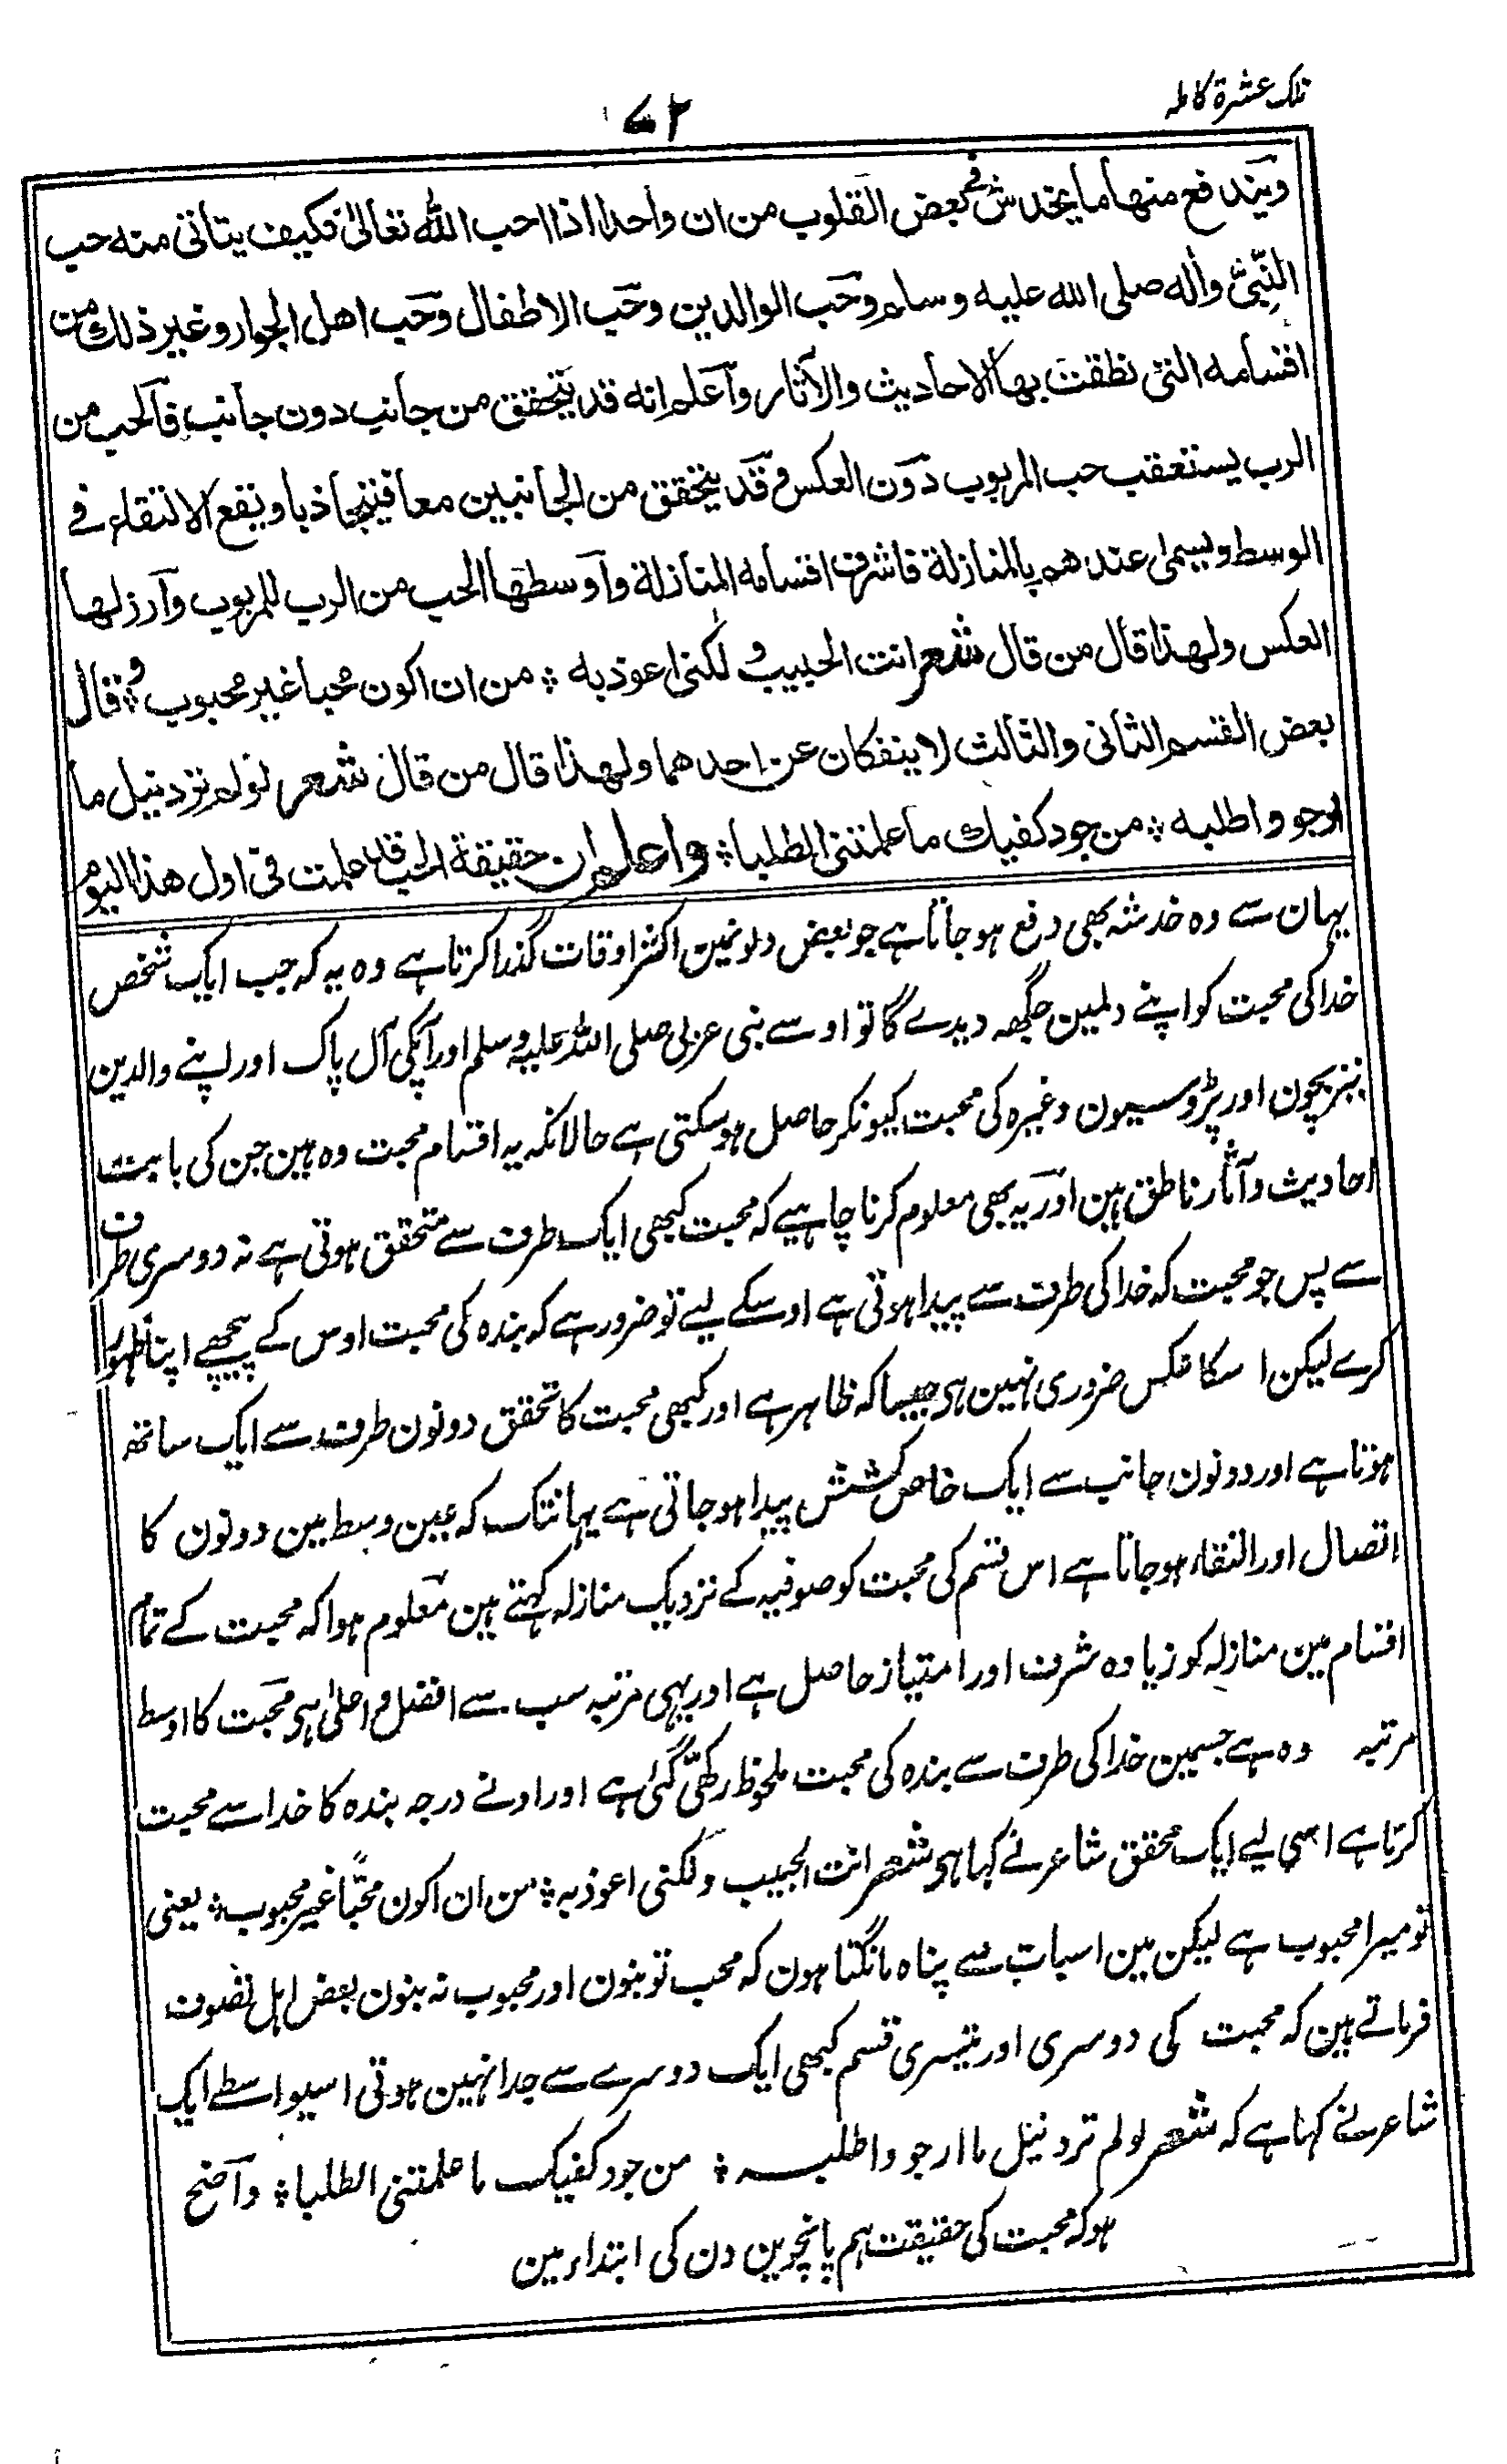 تلک عشرۃ کاملہ
۷۲
ویندفع منها ما یخدش فی بعض القلوب من ان واحدا اذا احب الله تعالیٰ فکیف یتأتی منه حب
النبیّ واٰله صلی الله علیه وسلم وحب الوالدین وحب الاطفال وحب اهل الجوار وغیر ذلك من
اقسامه التی نطقت بها الاحادیث والآثار واعلم انه قد یتحقق من جانب دون جانب فالحب من
الرب یستعقب حب المربوب دون العکس وقد یتحقق من الجانبین معا فیتجاذبا ویقع الالتقاء فی
الوسط ویسمی عندهم بالمنازلة فاشرف اقسامه المنازلة واوسطها الحب من الرب للمربوب وارذلها
العکس ولهذا قال من قال شعر انت الحبیب ولکنی اعوذ به ؞ من ان اکون محبا غیر محبوب ؞ وقال
بعض القسم الثانی والثالث لا ینفکان عن احدهما ولهذا قال من قال شعر لو لم ترد نیل ما
ارجو واطلبه ؞ من جود کفیك ما علمتنی الطلبا ؞ واعلم ان حقیقة الحب قد علمت فی اول هذا الیوم
یہان سے وہ خدشہ بھی دفع ہو جاتا ہے جو بعض دلونمین اکثر اوقات گذرا کرتا ہے وہ یہ کہ جب ایک شخص
خدا کی محبت کو اپنے دلمین جگہہ دیدے گا تو اوسے نبی عربی صلی اللہ علیہ وسلم اور آپکی آل پاک اور اپنے والدین
نیز بچون اور پڑوسیون وغیرہ کی محبت کیونکر حاصل ہوسکتی ہے حالانکہ یہ اقسام محبت وہ ہین جن کی بابت
احادیث وآثار ناطق ہین اور یہ بھی معلوم کرنا چاہیے کہ محبت کبھی ایک طرف سے متحقق ہوتی ہے نہ دوسری طرف
سے پس جو محبت کہ خدا کی طرف سے پیدا ہوتی ہے اوسکے لیے تو ضرور ہے کہ بندہ کی محبت اوس کے پیچھے اپنا ظہور
کرے لیکن اسکا عکس ضروری نہین ہی جیسا کہ ظاہر ہے اور کبھی محبت کا تحقق دونون طرف سے ایک ساتھ
ہوتا ہے اور دونون جانب سے ایک خاص کشش پیدا ہو جاتی ہے یہانتک کہ عین وسط مین دونون کا
اتصال اور التقاء ہو جاتا ہے اس قسم کی محبت کو صوفیہ کے نزدیک منازلہ کہتے ہین معلوم ہوا کہ محبت کے تمام
اقسام مین منازلہ کو زیادہ شرف اور امتیاز حاصل ہے اور یہی مرتبہ سب سے افضل واعلیٰ ہی محبت کا اوسط
مرتبہ وہ ہے جسمین خدا کی طرف سے بندہ کی محبت ملحوظ رکھی گئی ہے اور ادنے درجہ بندہ کا خدا سے محبت
کرتا ہے اسی لیے ایک محقق شاعر نے کہا ہی شعر انت الحبیب ولکنی اعوذ بہ ؞ من ان اکون محبًّا غیر محبوب ؞ یعنی
تو میرا محبوب ہے لیکن مین اسبات سے پناہ مانگتا ہون کہ محب تو بنون اور محبوب نہ بنون بعض اہل تصوف
فرماتے ہین کہ محبت کی دوسری اور تیسری قسم کبھی ایک دوسرے سے جدا نہین ہوتی اسیواسطے ایک
شاعر نے کہا ہے کہ شعر لو لم ترد نیل ما ارجو واطلبہ ؞ من جود کفیک ما علمتنی الطلبا ؞ واضح
ہو کہ محبت کی حقیقت ہم پانچوین دن کی ابتداء مین